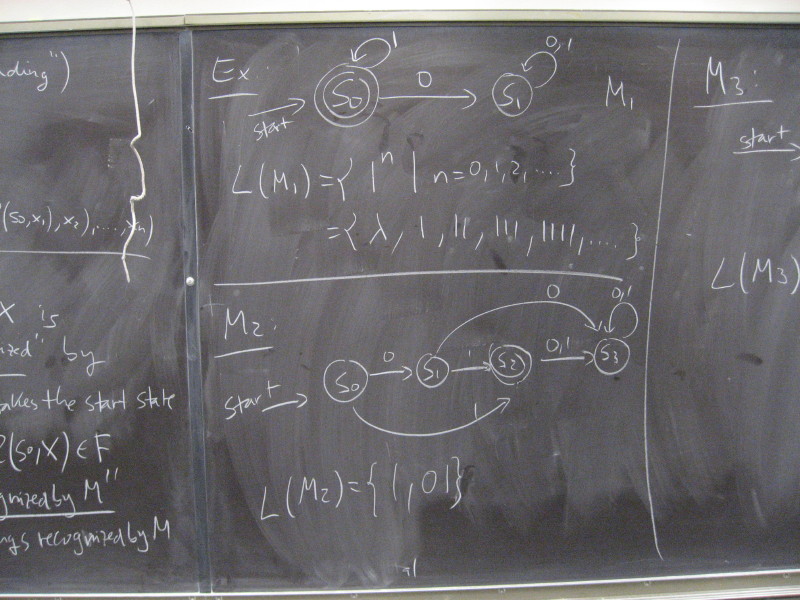 ding")
(s0,x1),x2),...,xn)
X is
ized" by
akes the start state
(s0,X) ∈ F
gnized by M"
ngs recognized by M
Ex:
start
S0
1
0
S1
0,1
M1
L(M1)={ 1^n | n=0,1,2,....}
={ λ, 1, 11, 111, 1111,....}
M2:
start
S0
0
S1
1
S2
0,1
S3
0
0,1
1
L(M2)={1,01}
M3:
start
L(M3)